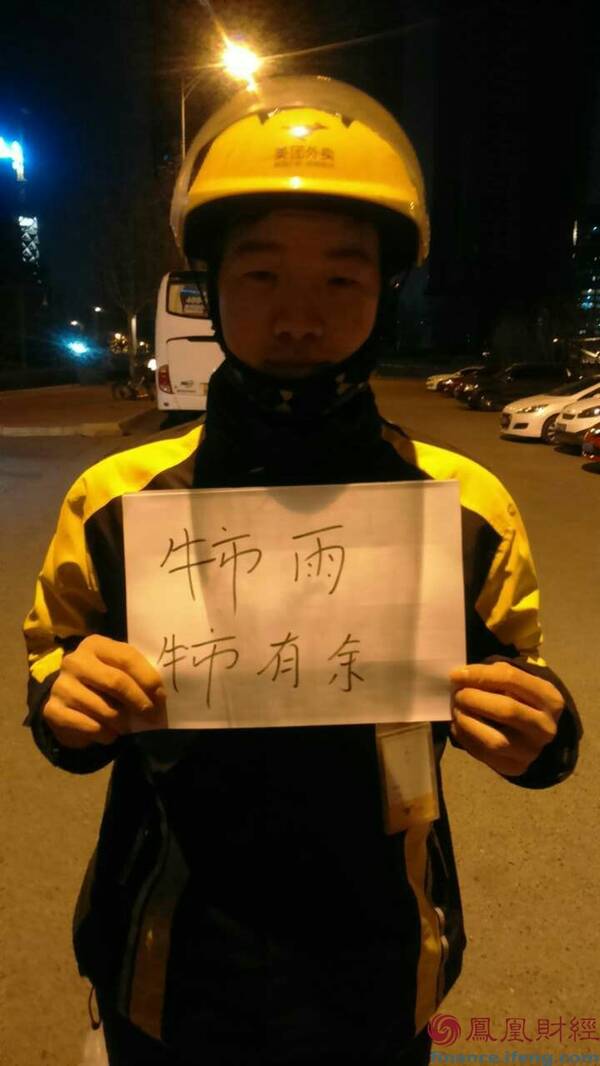 美团外卖
牛市 雨
牛市 有 余
鳳凰財經
finance.ifeng.com